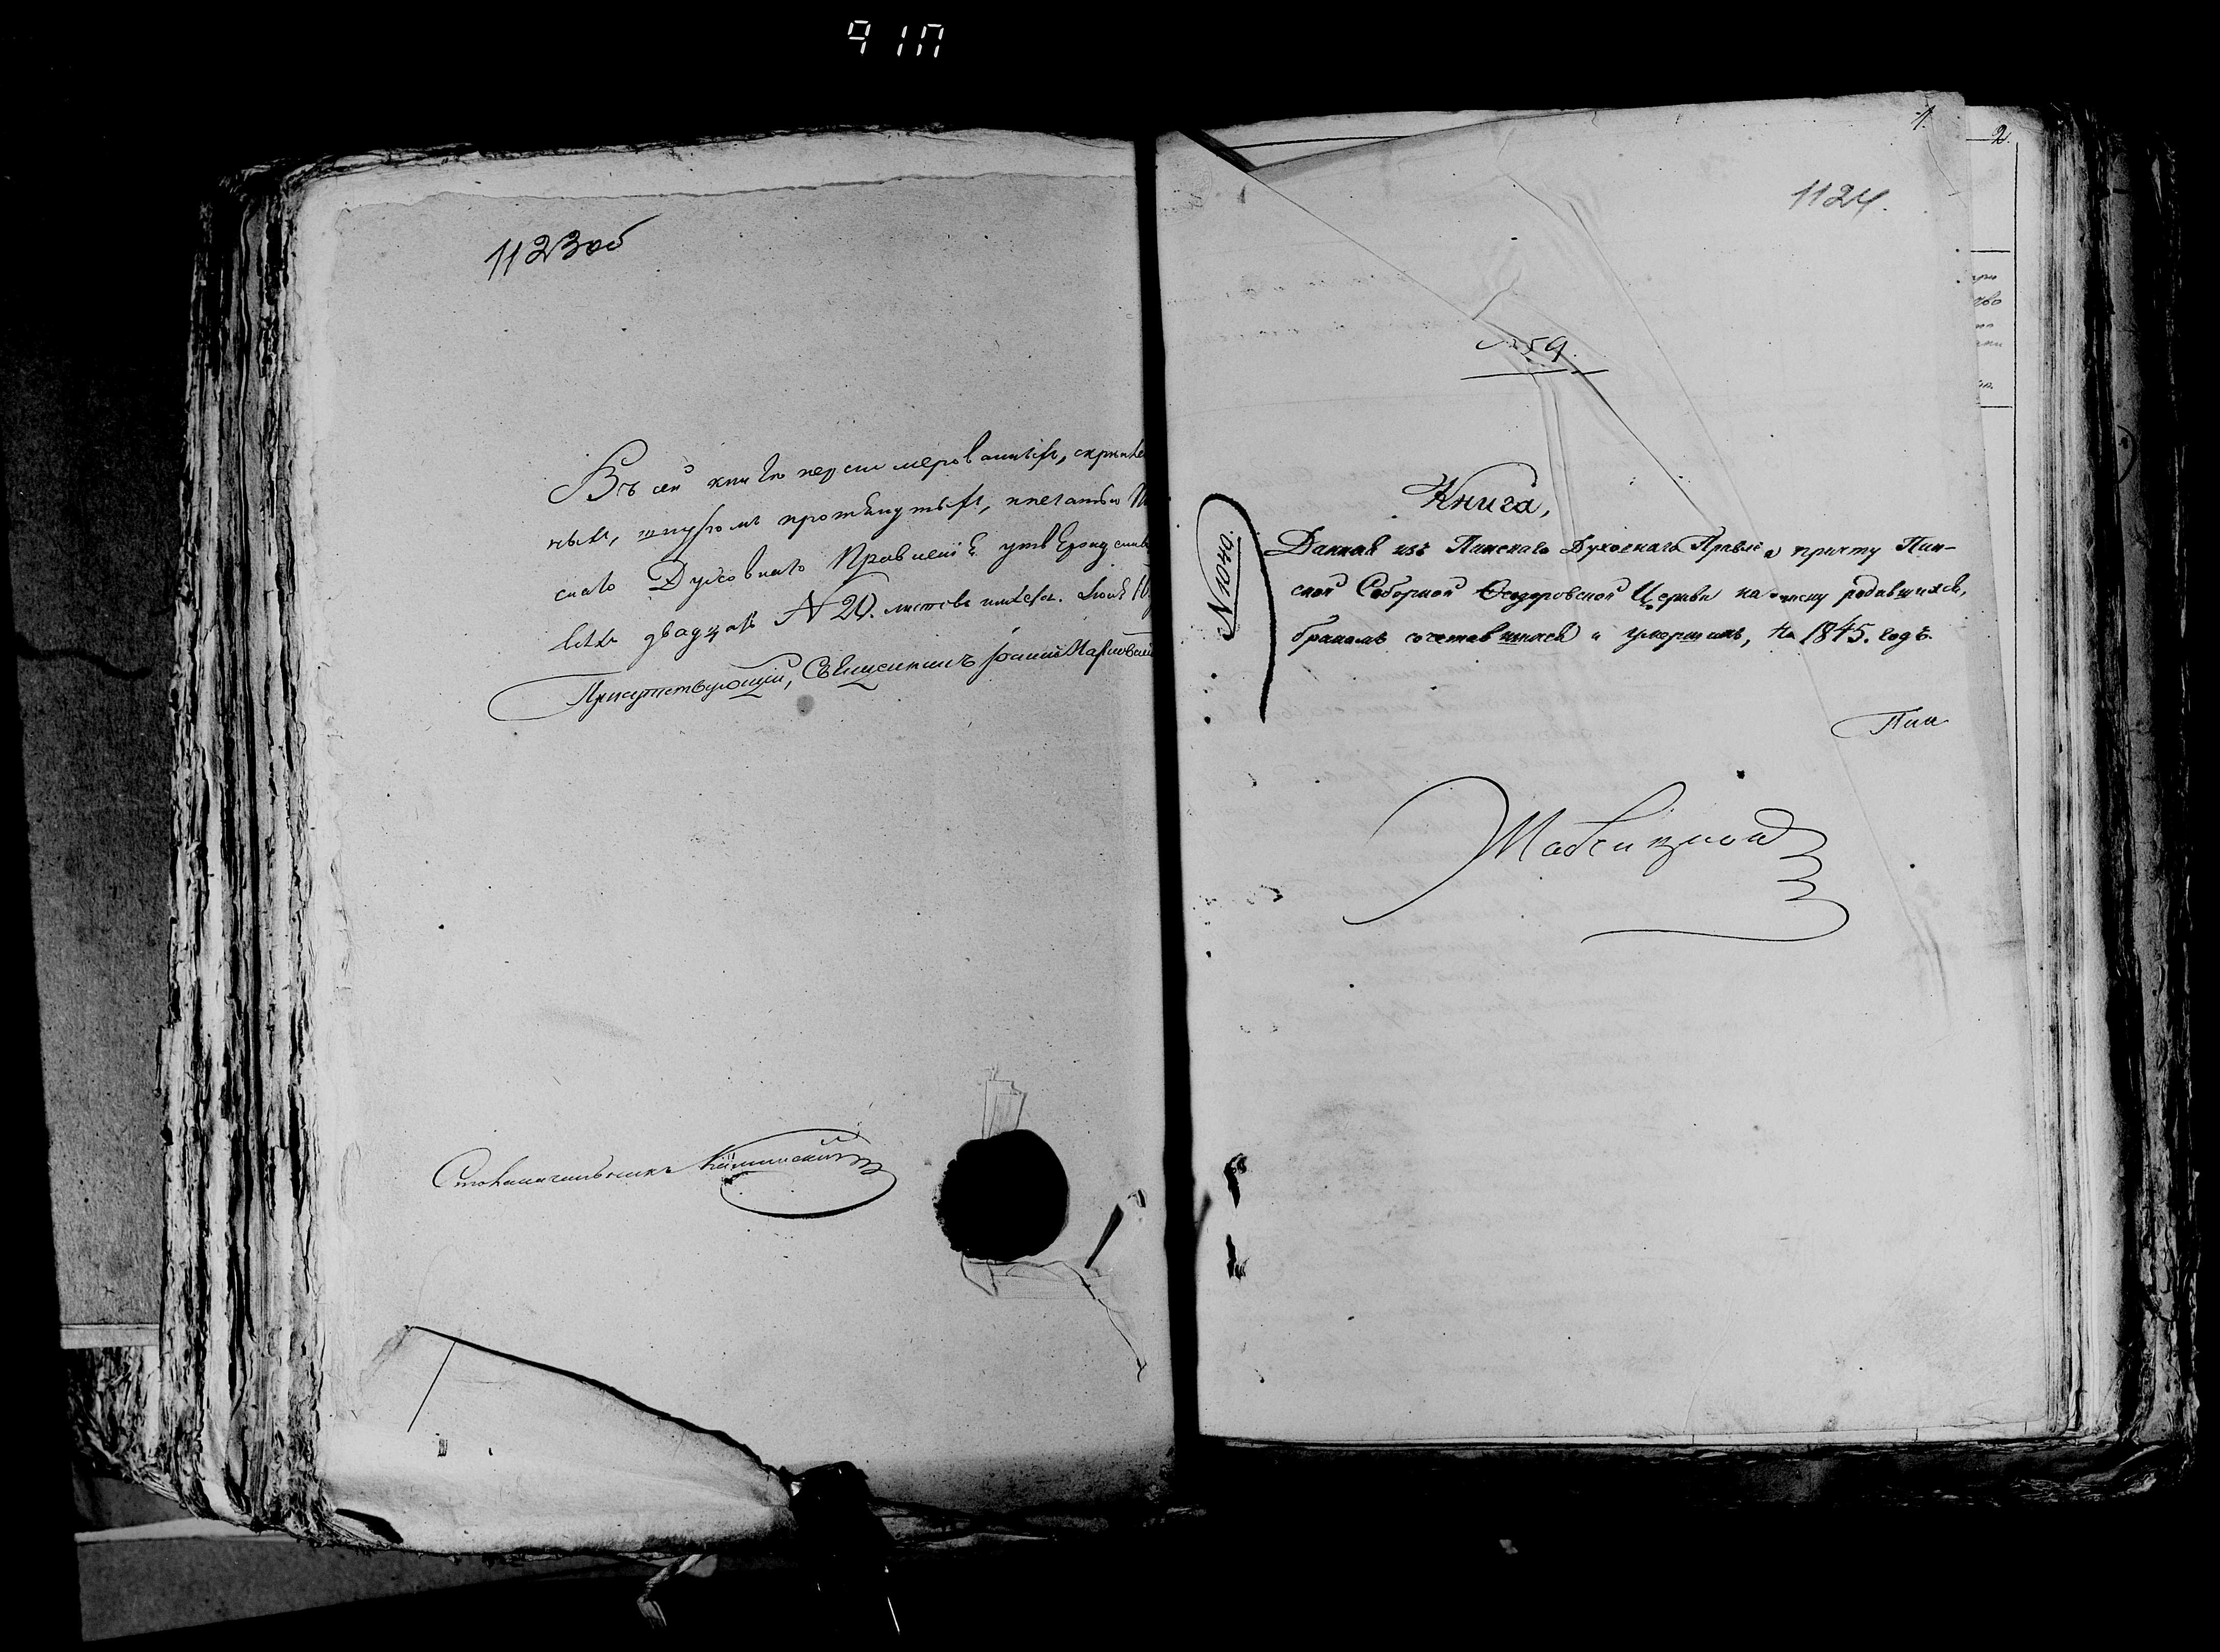 910
1123об
Въ сей книгѣ перенумерованныхъ, скрѣплен
ныхъ, шнуромъ протянутыхъ, печатью
скаго Духовнаго Правленія утвержденныхъ
двадцать N 20. листовъ имѣется.
Присутствующій, Священникъ Іоаннъ
Столоначальникъ
1.
2.
1124.
№ 59.
N 1040.
Книга,
Данная изъ Пинскаго Духовнаго Правленія причту Пин-
ской Соборной Ѳеодоровской Церкви на записку родившихся,
бракомъ сочетавшихся и умершихъ, на 1845. годъ.
Пин